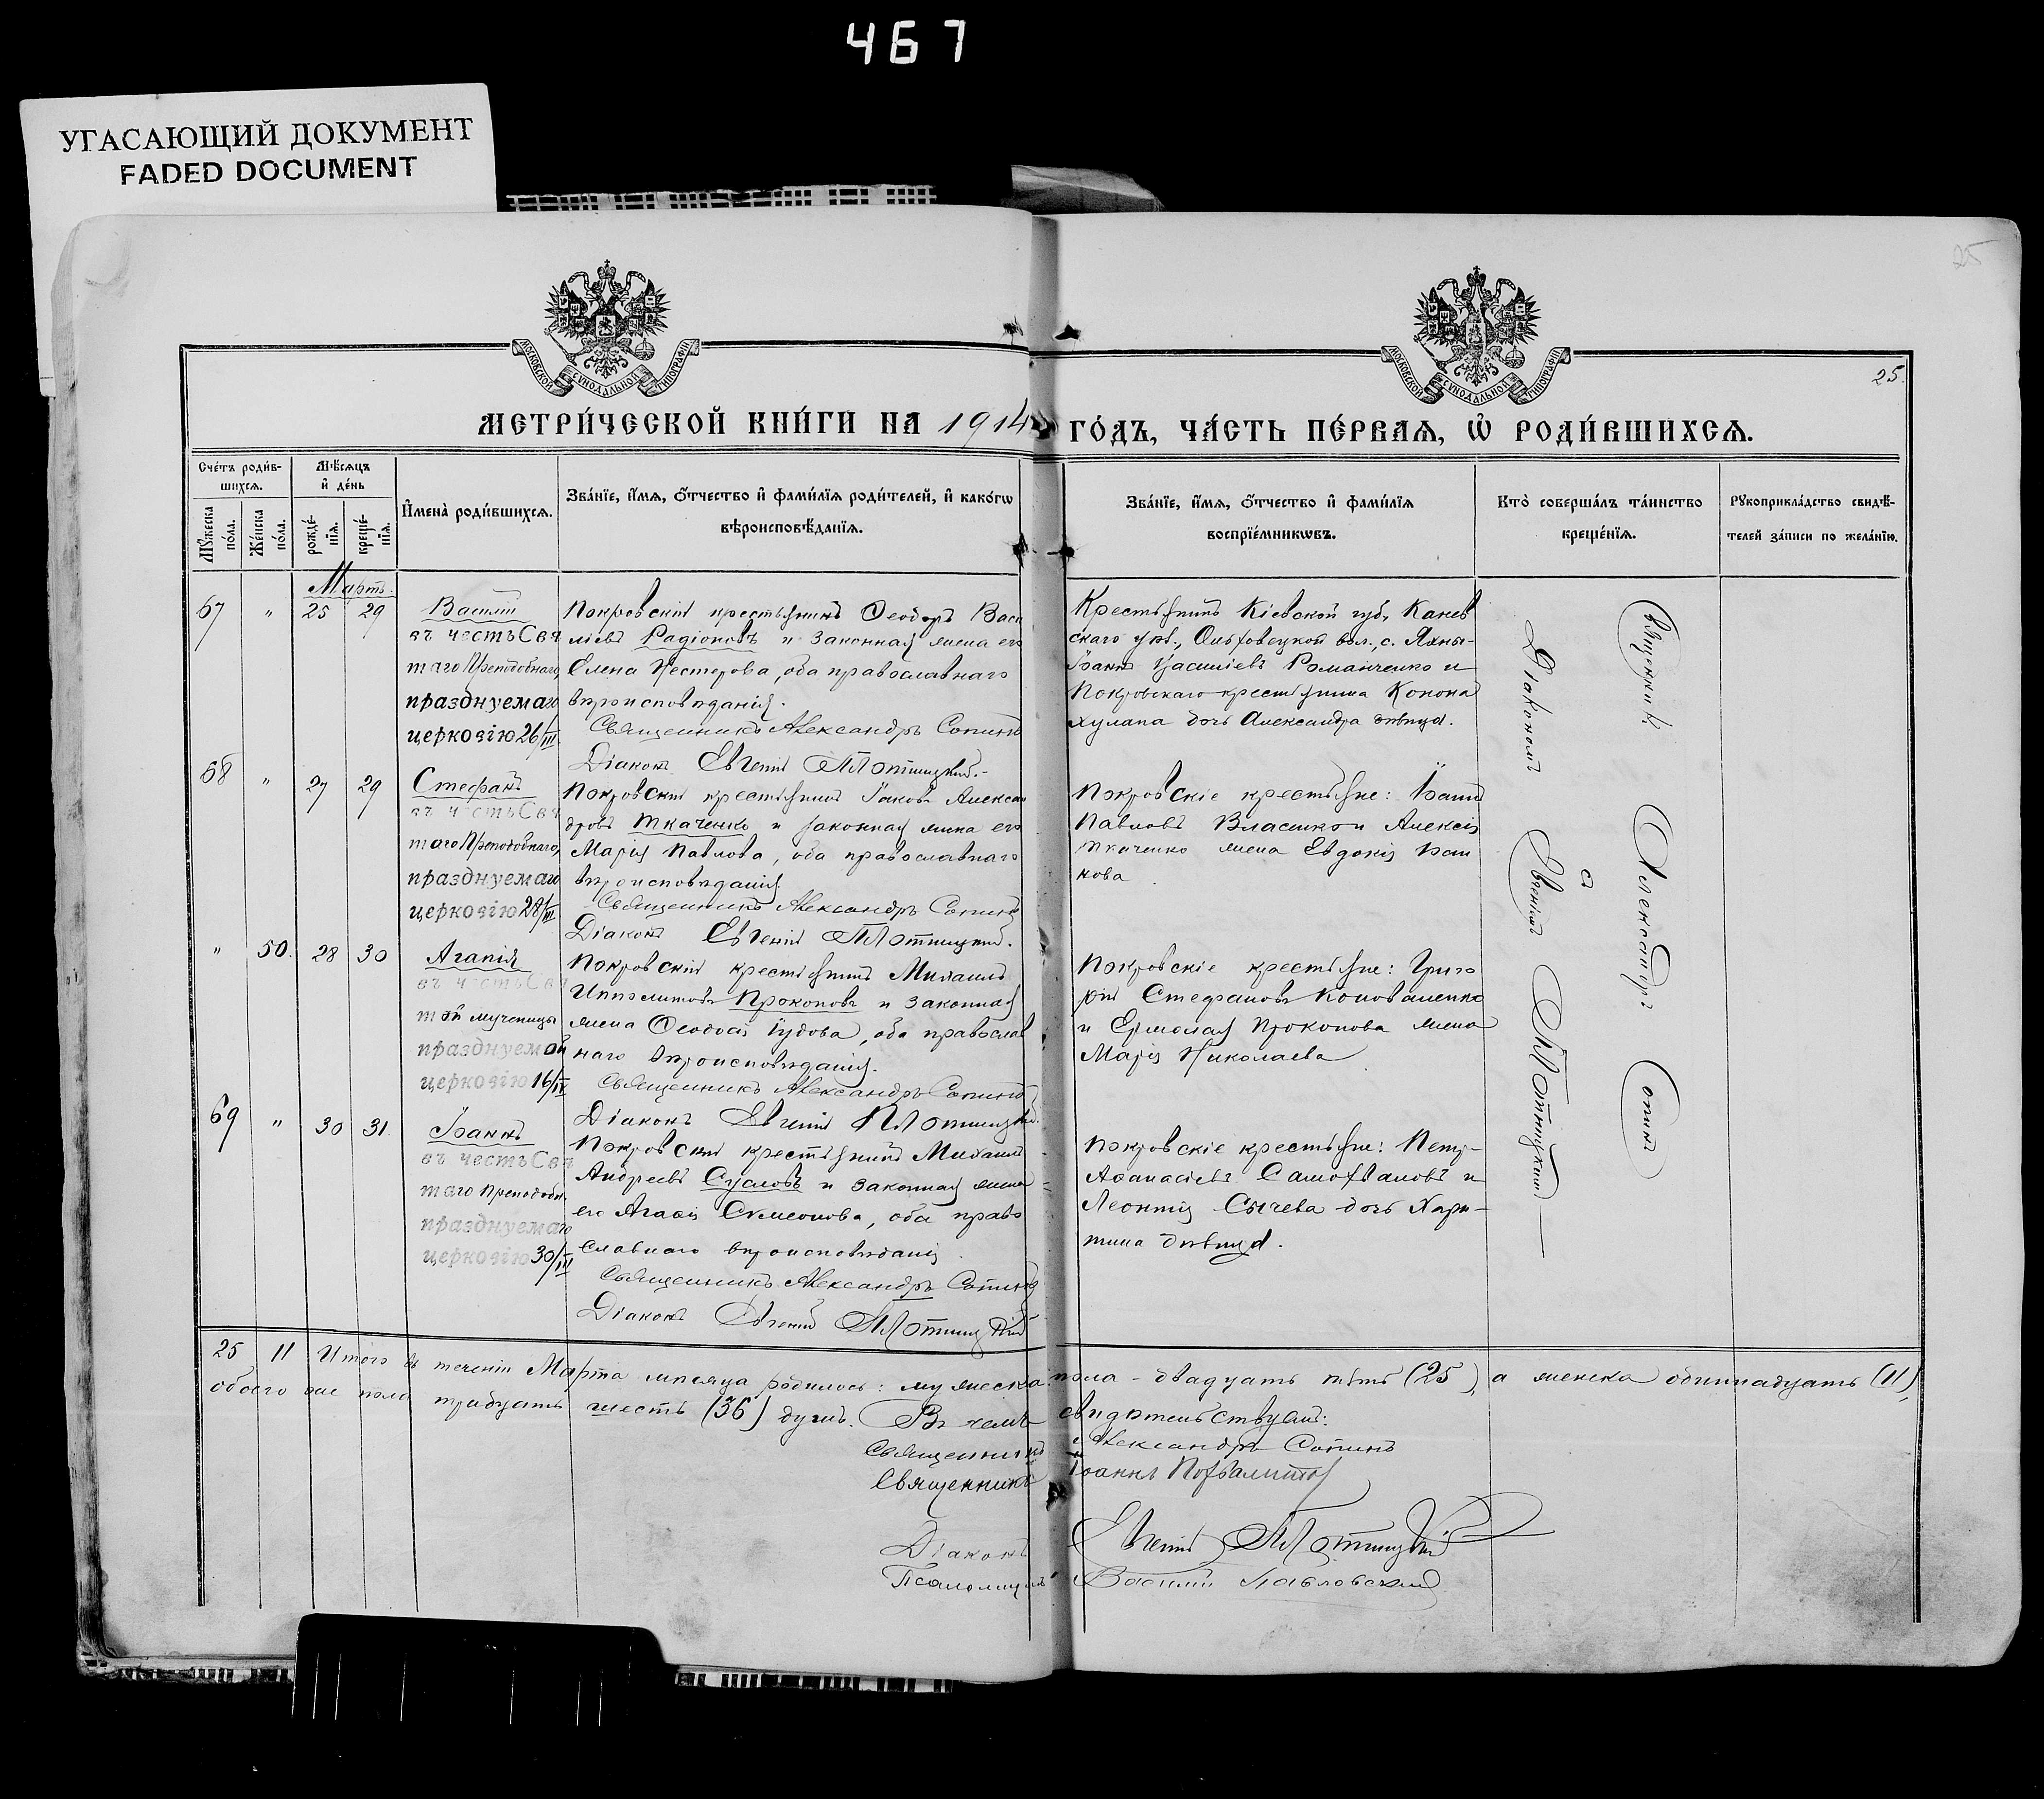 467
УГАСАЮЩИЙ ДОКУМЕНТ
FADED DOCUMENT
25
МОСКОВСКОЙ СѴНОДАЛЬНОЙ ТИПОГРАФІИ
МОСКОВСКОЙ СѴНОДАЛЬНОЙ ТИПОГРАФІИ
25.
МЕТРИ́ЧЕСКОЙ КНИ́ГИ НА 1914
ГО́ДЪ, ЧА́СТЬ ПЕ́РВАѦ, Ѡ҆ РОДИ́ВШИХСѦ.
Счетъ роди́в-
шихсѧ.
Мѣ́сѧцъ
и҆ де́нь
Мꙋ́жеска
по́ла.
Же́нска
по́ла.
рожде́-
нїѧ.
креще́-
нїѧ.
И҆мена̀ роди́вшихсѧ.
Зва́нїе, и҆́мѧ, ѻ҆́тчество и҆ фами́лїѧ роди́телей, и҆ како́гѡ
вѣроисповѣ́данїѧ.
Зва́нїе, и҆́мѧ, ѻ҆́тчество и҆ фами́лїѧ
воспрїе́мникѡвъ.
Кто̀ соверша́лъ та́инство
креще́нїѧ.
Рꙋкоприкла́дство свидѣ́-
телей за́писи по жела́нїю.
Мартъ.
67 " 25 29
Василій
въ честь Свя
таго Преподобнаго,
празднуемаго
церковію 26/III
Покровскій крестьянинъ Ѳеодоръ Васи
ліевъ Радіоновъ и законная жена его
Елена Нестерова, оба православнаго
вѣроисповѣданія.
Священникъ Александръ Сопинъ
Діаконъ Евгеній Плотницкій.-
Крестьянинъ Кіевской губ., Канев
скаго уѣз., Ольховецкой вол., с. Яхны-
Іоаннъ Василіевъ Романченко и
Покровскаго крестьянина Конона
Хулапа дочь Александра дѣвица.
68 " 27 29
Стефанъ
въ честь Свя
таго Преподобнаго,
празднуемаго
церковію 28/III
Покровскій крестьянинъ Іаковъ Алексан
дровъ Ткаченко и законная жена его
Марія Павлова, оба православнаго
вѣроисповѣданія
Священникъ Александръ Сопинъ
Діаконъ Евгеній Плотницкій.
Покровскіе крестьяне: Іоаннъ
Павловъ Власенко и Алексія
Ткаченко жена Евдокія Іоан
нова
" 50. 28 30
Агапія
въ честь Свя
той мученицы
празднуемой
церковію 16/IV
Покровскій крестьянинъ Михаилъ
Ипполитовъ Прокоповъ и законная
жена Ѳеодосія Іудова, оба православ
наго вѣроисповѣданія.
Священникъ Александръ Сопинъ
Діаконъ Евгеній Плотницкій.
Покровскіе крестьяне: Григо
рій Стефановъ Коноваленко
и Ермолая Прокопова жена
Марія Николаева
69 " 30 31.
Іоаннъ
въ честь Свя
таго Преподобн.
празднуемаго
церковію 30/III
Покровскій крестьянинъ Михаилъ
Андреевъ Сусловъ и законная жена
его Агафія Симеонова, оба право
славнаго вѣроисповѣданія.
Священникъ Александръ Сопинъ
Діаконъ Евгеній Плотницкій
Покровскіе крестьяне: Петръ
Афанасіевъ Самохваловъ и
Леонтія Сычева дочь Хари-
тина дѣвица.
Священникъ Александръ Сопинъ
съ
Діакономъ Евгеніемъ Плотницкимъ
25 11 Итого въ теченіи Марта мѣсяца родилось: мужеска пола - двадцать пять (25), а женска одиннадцать (11),
обоего же пола тридцать шесть (36) душъ. Въ чемъ свидѣтельствуемъ:
Священникъ Александръ Сопинъ
Священникъ Іоаннъ
Діаконъ Евгеній Плотницкій
Псаломщикъ Василій Павловскій